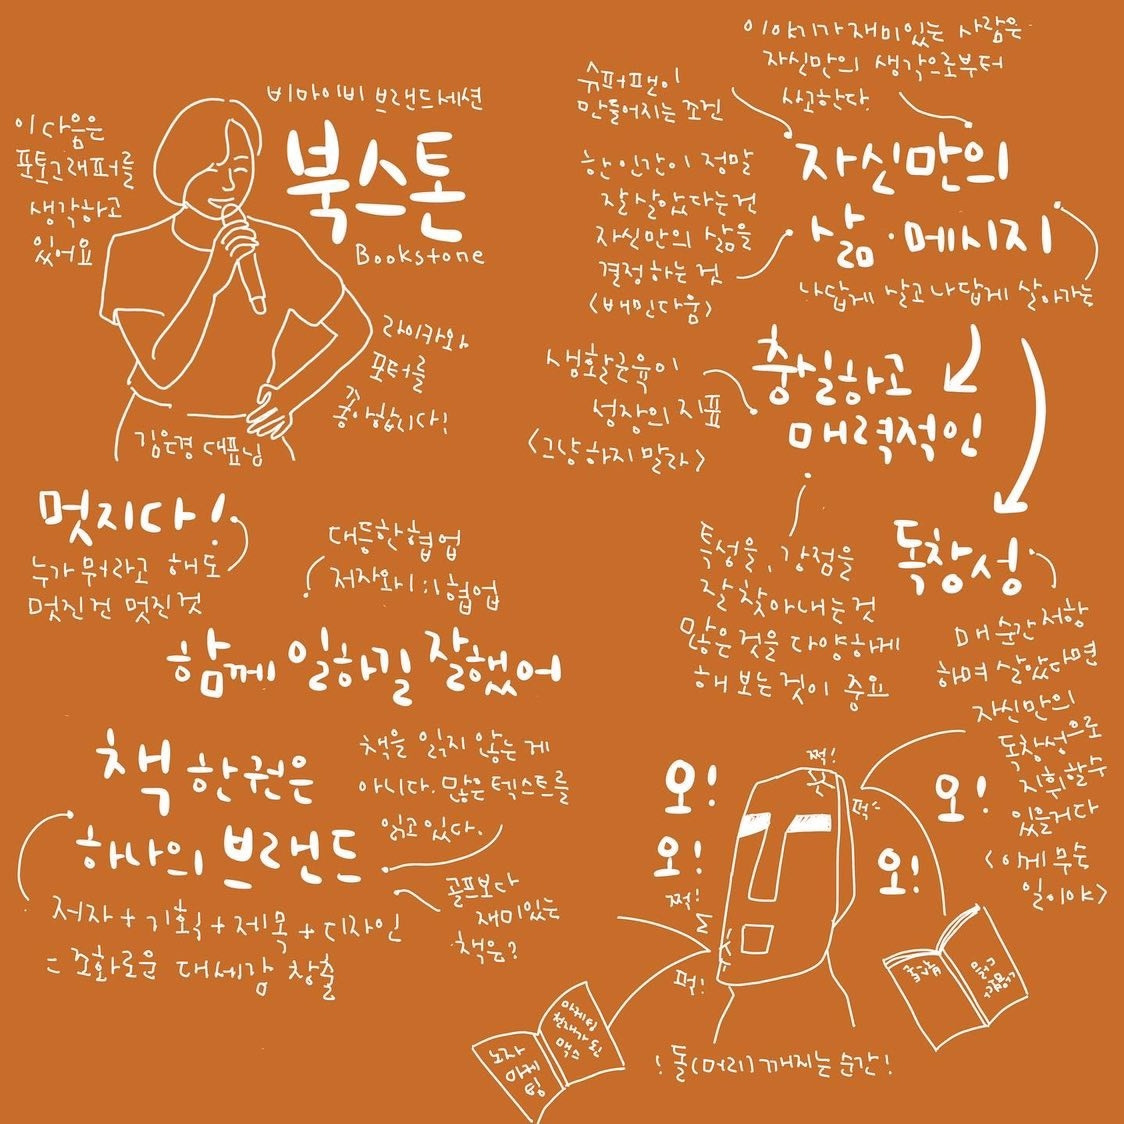 비마이비 브랜드세션
북스톤
Bookstone
이 다음은
포토그래퍼를
생각하고
있어요
라이카와
포터를
좋아합니다!
김은경 대표님
멋지다!
누가 뭐라고 해도
멋진건 멋진것
대등한 협업
저자와 1:1 협업
함께 일하길 잘했어
책 한권은
하나의 브랜드
책을 읽지 않는게
아니다. 많은 텍스트를
읽고있다.
골프보다
재미있는
책은?
저자+기획+제목+디자인
= 조화로운 대세감 창출
이야기가 재미있는 사람은
자신만의 생각으로부터
사고한다.
슈퍼팬이
만들어지는 조건
자신만의
삶·메시지
나답게 살고 나답게 살아가는
한 인간이 정말
잘 살았다는건
자신만의 삶을
결정하는 것
<배민다움>
충실하고
매력적인
생활근육이
성장의 지표
<그냥 하지 말라>
특성을, 강점을
잘 찾아내는것
많은 것을 다양하게
해 보는 것이 중요
독창성
매 순간 저항
하며 살았다면
자신만의
독창성으로
지휘할수
있을거다
<이게 무슨
일이야>
오!
오!
오!
오!
쩍!
퍽!
쩍!
퍽!
노자
마케
팅
마케팅
천재가 된
맥스
!돌(머리) 깨지는 순간!